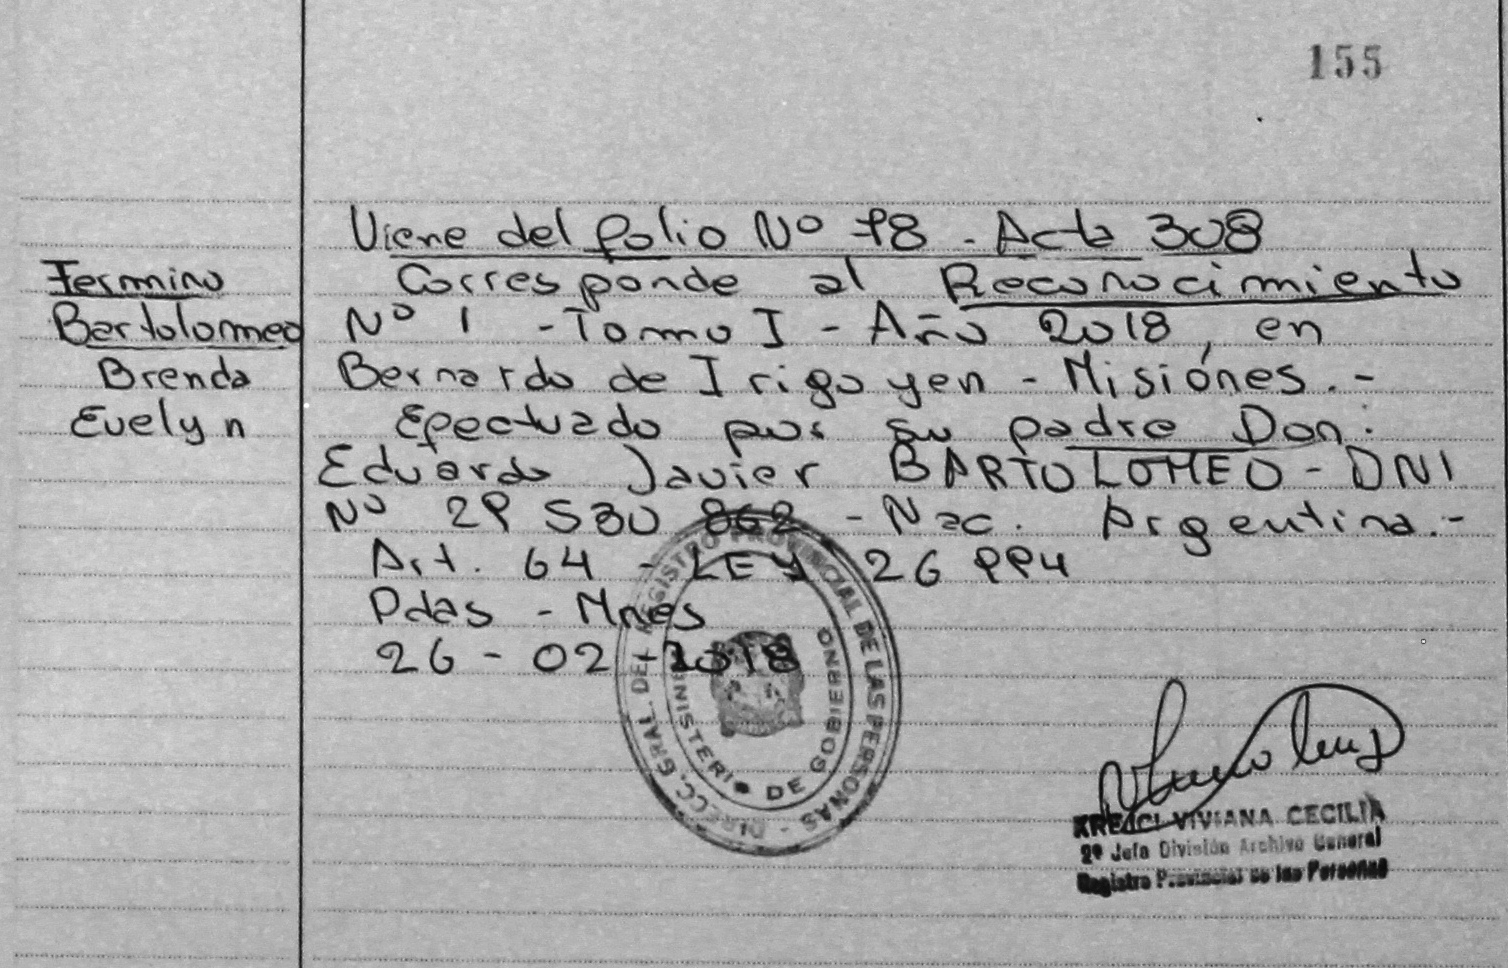 155
Viene del folio Nº 78 - Acta 308
Termino
Corresponde al Reconocimiento
Bartolomeo
Nº 1 - Tomo I - Año 2018, en
Brenda
Bernardo de Irigoyen - Misiónes.-
Evelyn
Efectuado por su padre Don:
Eduardo Javier BARTOLOMEO - DNI
Nº 29 530 862 - Nac. Argentina.-
Art. 64 - LEY 26 994
Pdas - Mnes
26 - 02 - 2018
DIRECC. GRAL. DEL REGISTRO PROVINCIAL DE LAS PERSONAS -
DE GOBIERNO
VIVIANA CECILIA
2º Jefa División Archivo General
Registro Provincial de las Personas